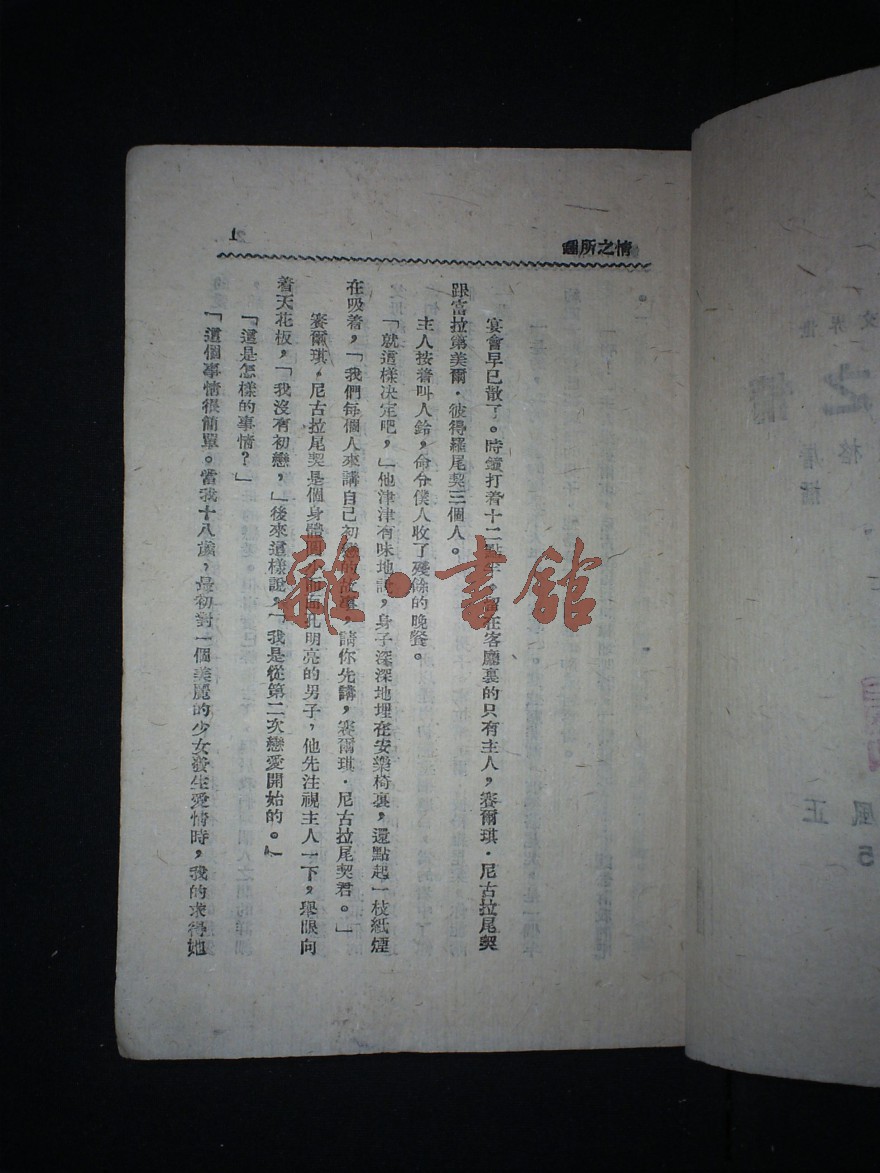 情之所鍾
1
宴會早已散了。時鐘打着十二點半，留在客廳裏的只有主人，賽爾琪·尼古拉尾契
跟富拉第美爾·彼得羅尾契三個人。
主人按着叫人鈴，命令僕人收了殘餘的晚餐。
「就這樣决定吧，」他津津有味地說，身子深深地埋在安樂椅裏，還點起一枝紙煙
在吸着，「我們每個人來講自己初戀的故事，請你先講，賽爾琪·尼古拉尾契君。」
賽爾琪·尼古拉尾契是個身體圓小而面孔明亮的男子，他先注視主人一下，舉眼向
着天花板，「我沒有初戀，」後來這樣說，「我是從第二次戀愛開始的。」
「這是怎樣的事情？」
「這個事情很簡單。當我十八歲，最初對一個美麗的少女發生愛情時，我的求得她
雜·書館
正
風
5